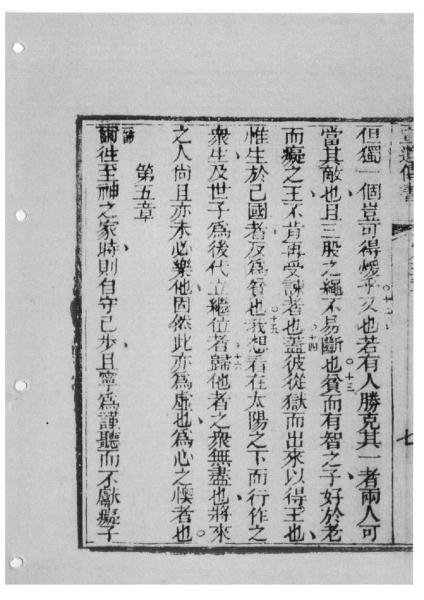 但獨一個豈可得煖乎又也若有人勝克其一者兩人可
當其敵也且三股之繩不易斷也貧而有智之子好於老
而癡之王不肯再受諫者也蓋彼從獄而出來以得王也
惟生於己國者反為貧也我想看在太陽之下而行作之
衆生及世子為後代立繼位者歸他者之衆無盡也將來
之人尚且亦未必樂他固然此亦為虛也為心之㥬者也
第五章
爾往至神之家時則自守己步且寧為謹聽而不獻癡子
十二
十三
十四
十五
十六
七